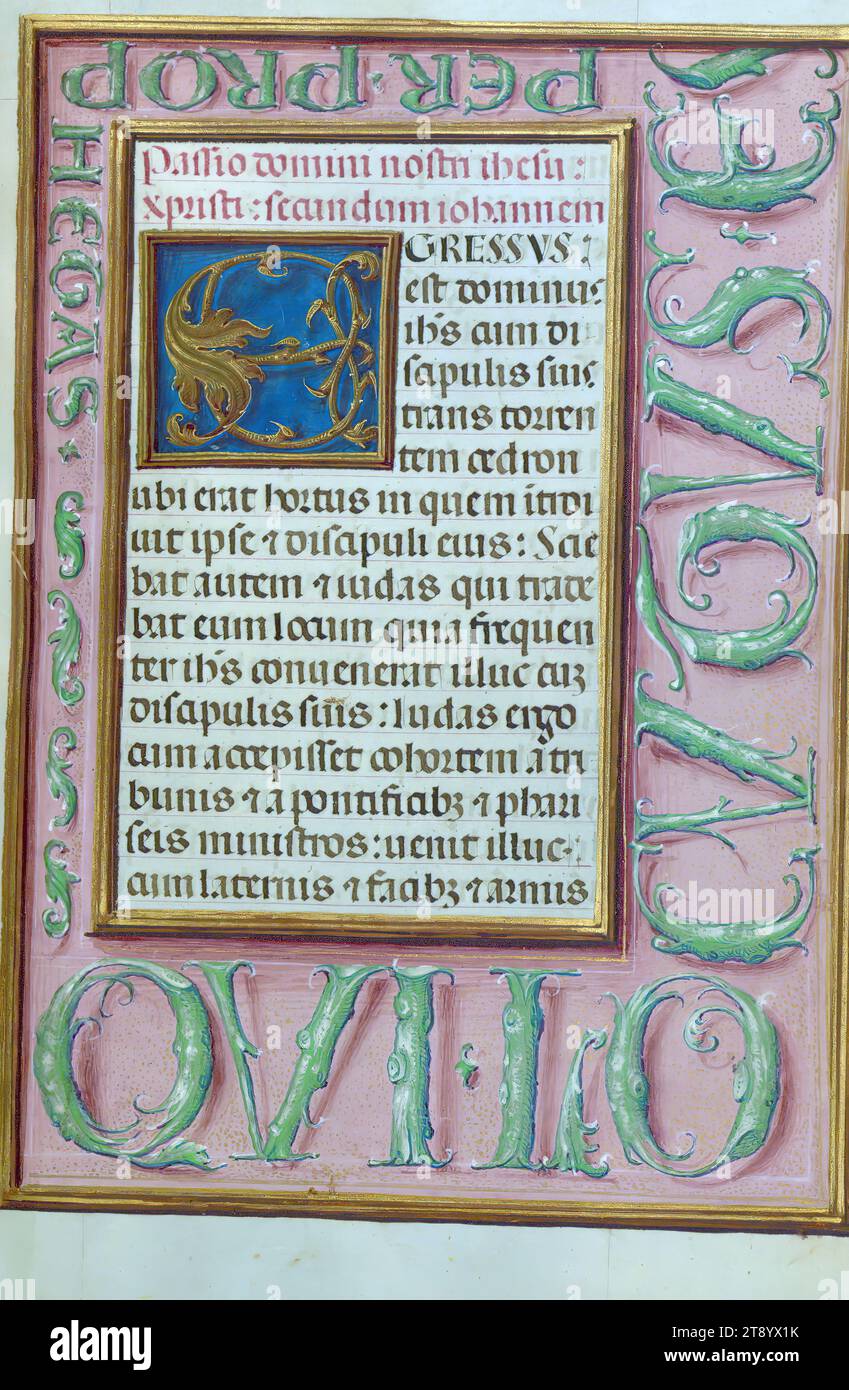 PER·PROP
HETAS
Passio domini nostri ihesu:
xpristi: secundum iohannem
EGRESSVS:
est dominus
ihs cum di
scipulis suis
trans torren
tem cedron
ubi erat hortus in quem ītroi
uit ipse ⁊ discipuli eius: Scie
bat autem ⁊ iudas qui trade
bat eum locum quia frequen
ter ihs convenerat illuc cuꝫ
discipulis suis: Iudas ergo
cum accepisset cohortem a tri
bunis ⁊ a pontificibꝫ ⁊ phari
seis ministros: uenit illuc
cum laternis ⁊ facibꝫ ⁊ armis
QVI·LO
CVTVS·ES
alamy
Image ID: 2T8YX1K
www.alamy.com